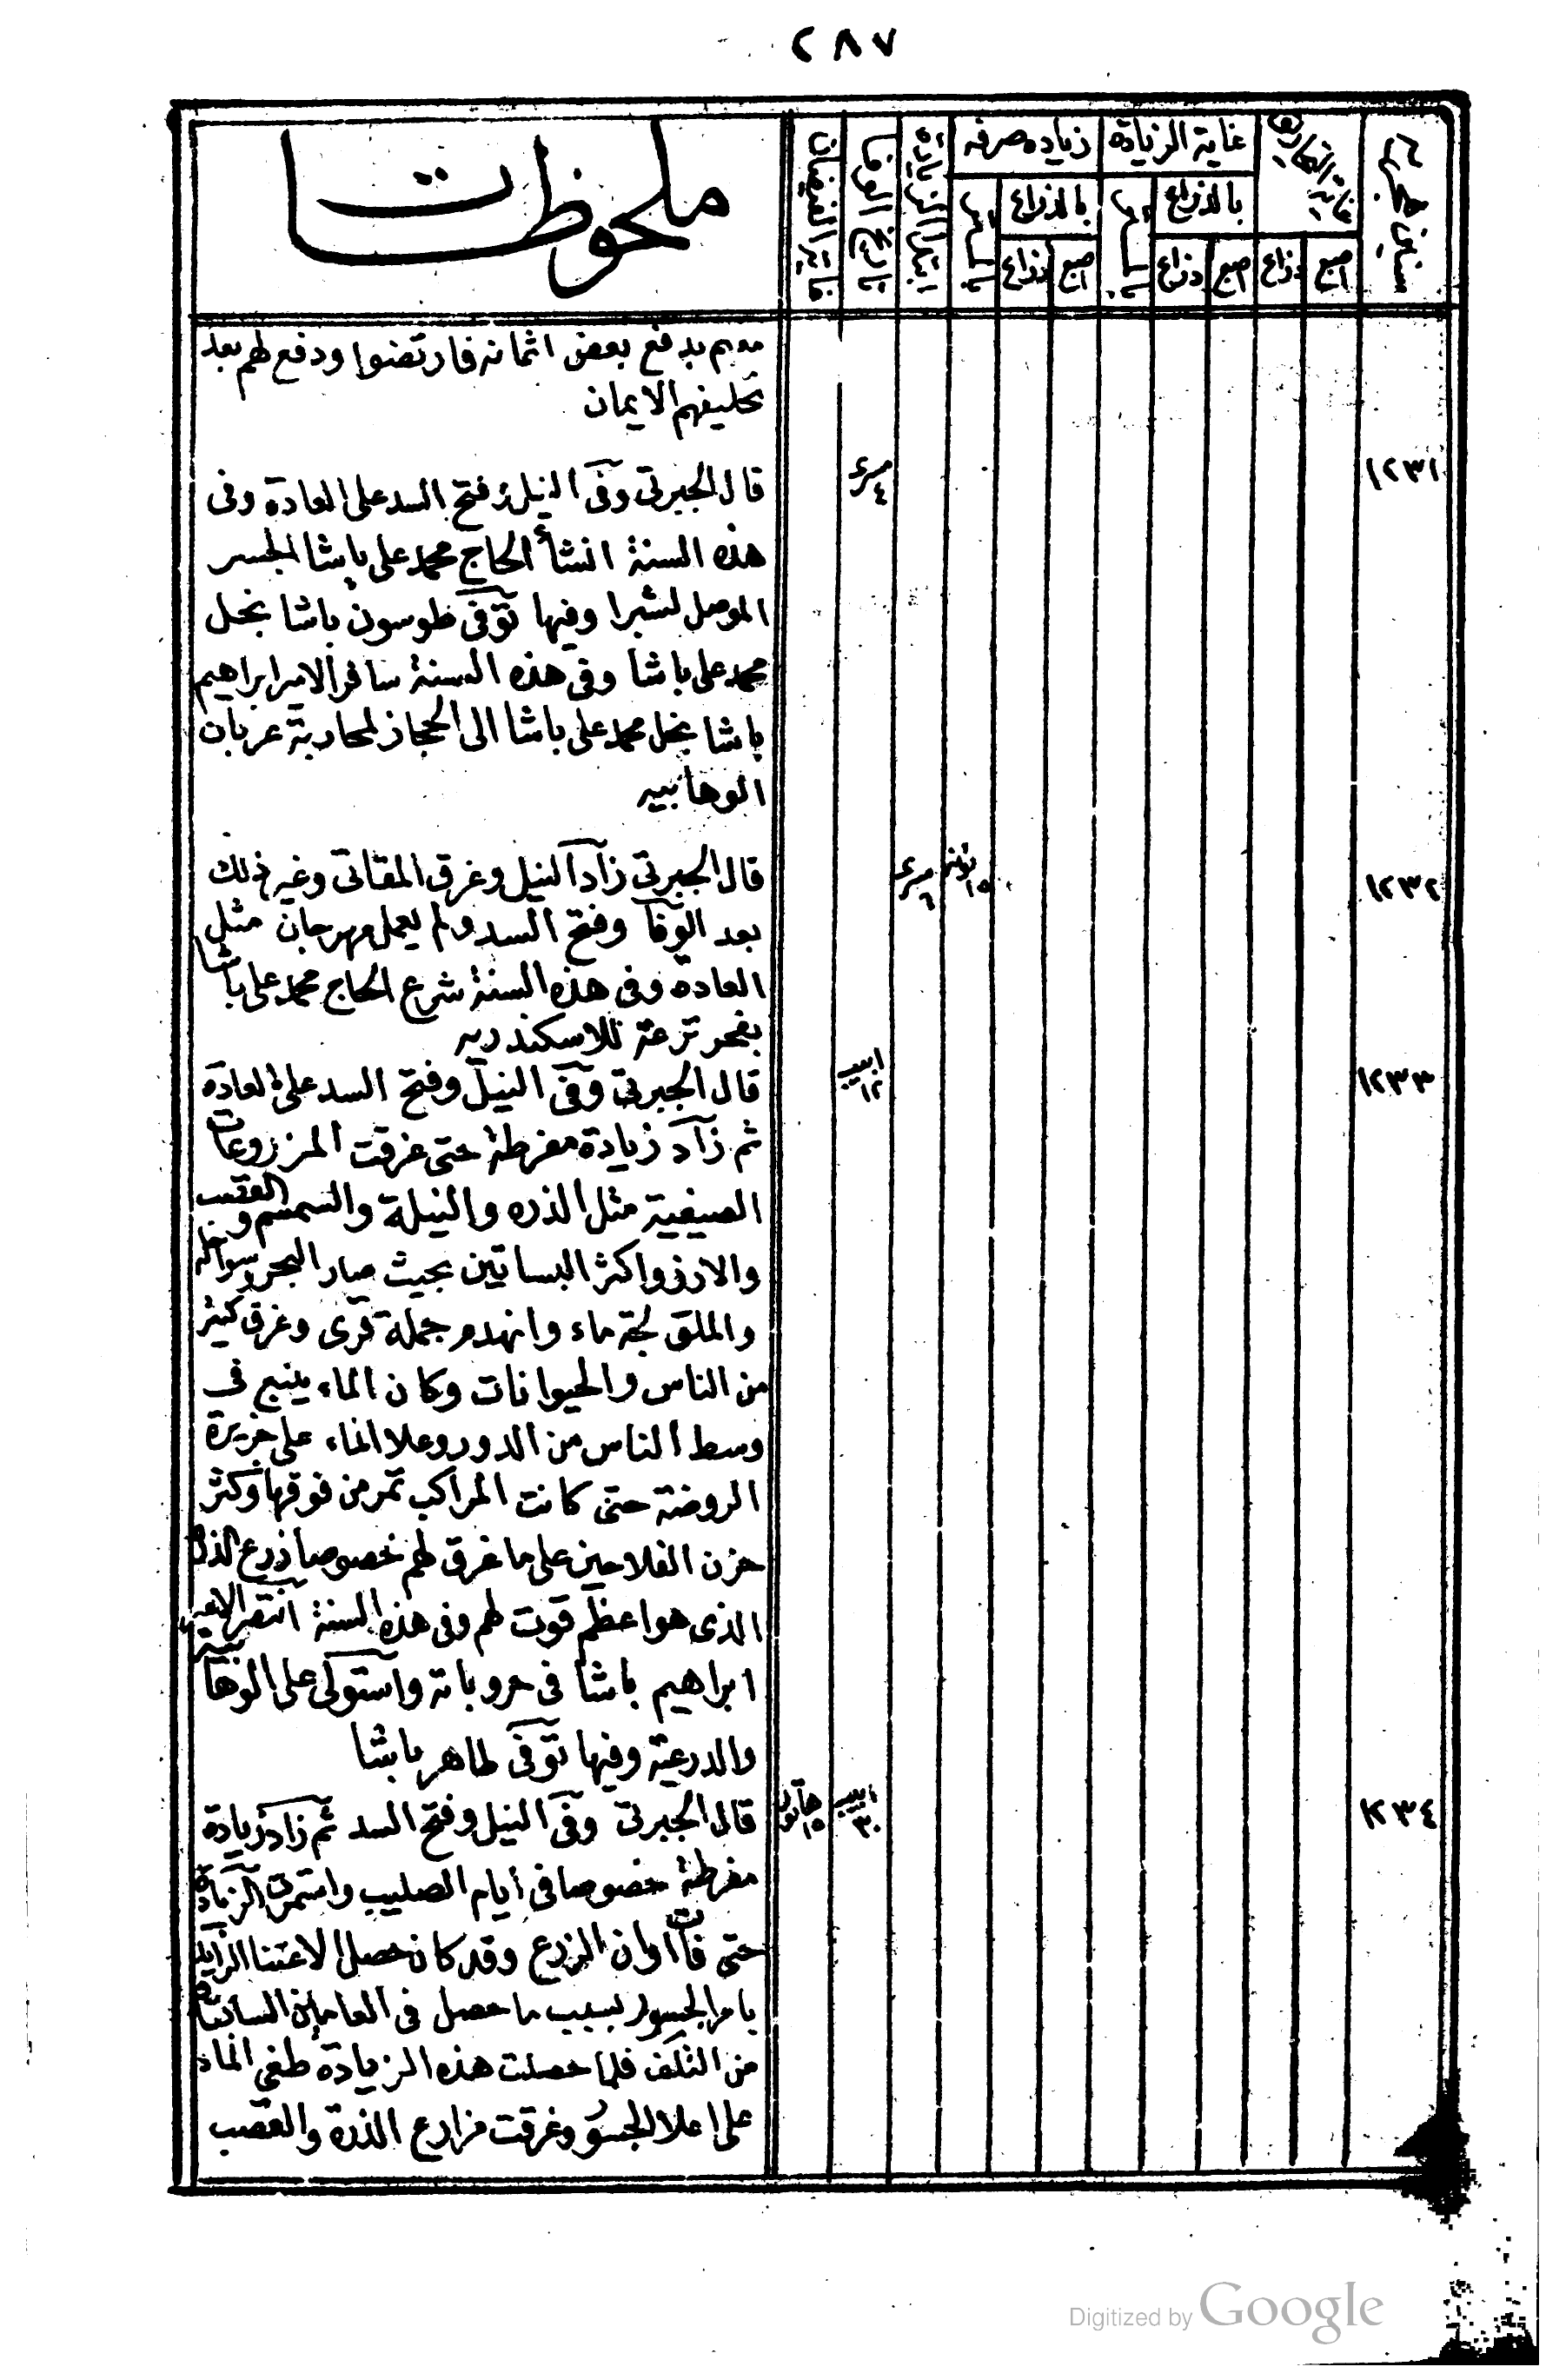 ٢٨٧
سنين هجريه
غاية التحاريق
غاية الزيادة
زياده صرفه
ابتداء الزيادة
تاريخ الوفا
غاية الفيضان
ملحوظات
بالذراع
بالمتر
بالذراع
بالمتر
اصبع
ذراع
اصبع
ذراع
اصبع
ذراع
بدفع بعض اثمانه فارتضوا ودفع لهم بعد
تحليفهم الايمان
١٢٣١
مسرى ٤
قال الجبرتى وفى النيل وفتح السد على العادة وفى
هذه السنة انشأ الحاج محمد على باشا الجسر
الموصل لشبرا وفيها توفى طوسون باشا نجل
محمد على باشا وفى هذه السنة سافر الامير ابراهيم
باشا نجل محمد على باشا الى الحجاز لمحاربة عربان
الوهابيه
١٢٣٢
١٥
مسرى ٦
قال الجبرتى زاد النيل وغرق المقاتى وغير ذلك
بعد الوفا وفتح السد ولم يعمل مهرجان مثل
العاده وفى هذه السنة شرع الحاج محمد على باشا
بفحر ترعة للاسكندريه
١٢٣٣
ابيب ١٢
قال الجبرتى وفى النيل وفتح السد على العادة
ثم زاد زيادة مفرطة حتى غرقت المزروعات
الصيفية مثل الذره والنيلة والسمسم والقصب
والارز واكثر البساتين بحيث صار البحر وسواحله
والملق لجة ماء وانهدم جملة قرى وغرق كثير
من الناس والحيوانات وكان الماء ينبع فى
وسط الناس من الدور وعلا الماء على جزيرة
الروضة حتى كانت المراكب تمر من فوقها وكثر
حزن الفلاحين على ما غرق لهم خصوصا زرع الذره
الذى هو اعظم قوت لهم وفى هذه السنة انتصر الامير
ابراهيم باشا فى حروباته واستولى على الوهابية
والدرعية وفيها توفى طاهر باشا
١٢٣٤
ابيب ٣٠
هاتور ١٥
قال الجبرتى وفى النيل وفتح السد ثم زاد زيادة
مفرطة خصوصا فى أيام الصليب واستمرت الزيادة
حتى فات اوان الزرع وقد كان حصل الاعتنا الزايد
بامر الجسور بسبب ما حصل فى العامين السابقين
من التلف فلما حصلت هذه الزيادة طغى الماء
على اعلا الجسور وغرقت مزارع الذرة والقصب
Digitized by Google